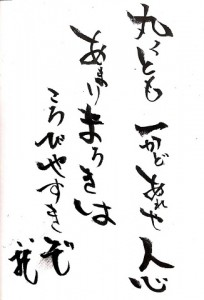 丸くとも一かどあれや人心
あまりまろきは
ころびやすきぞ
龍